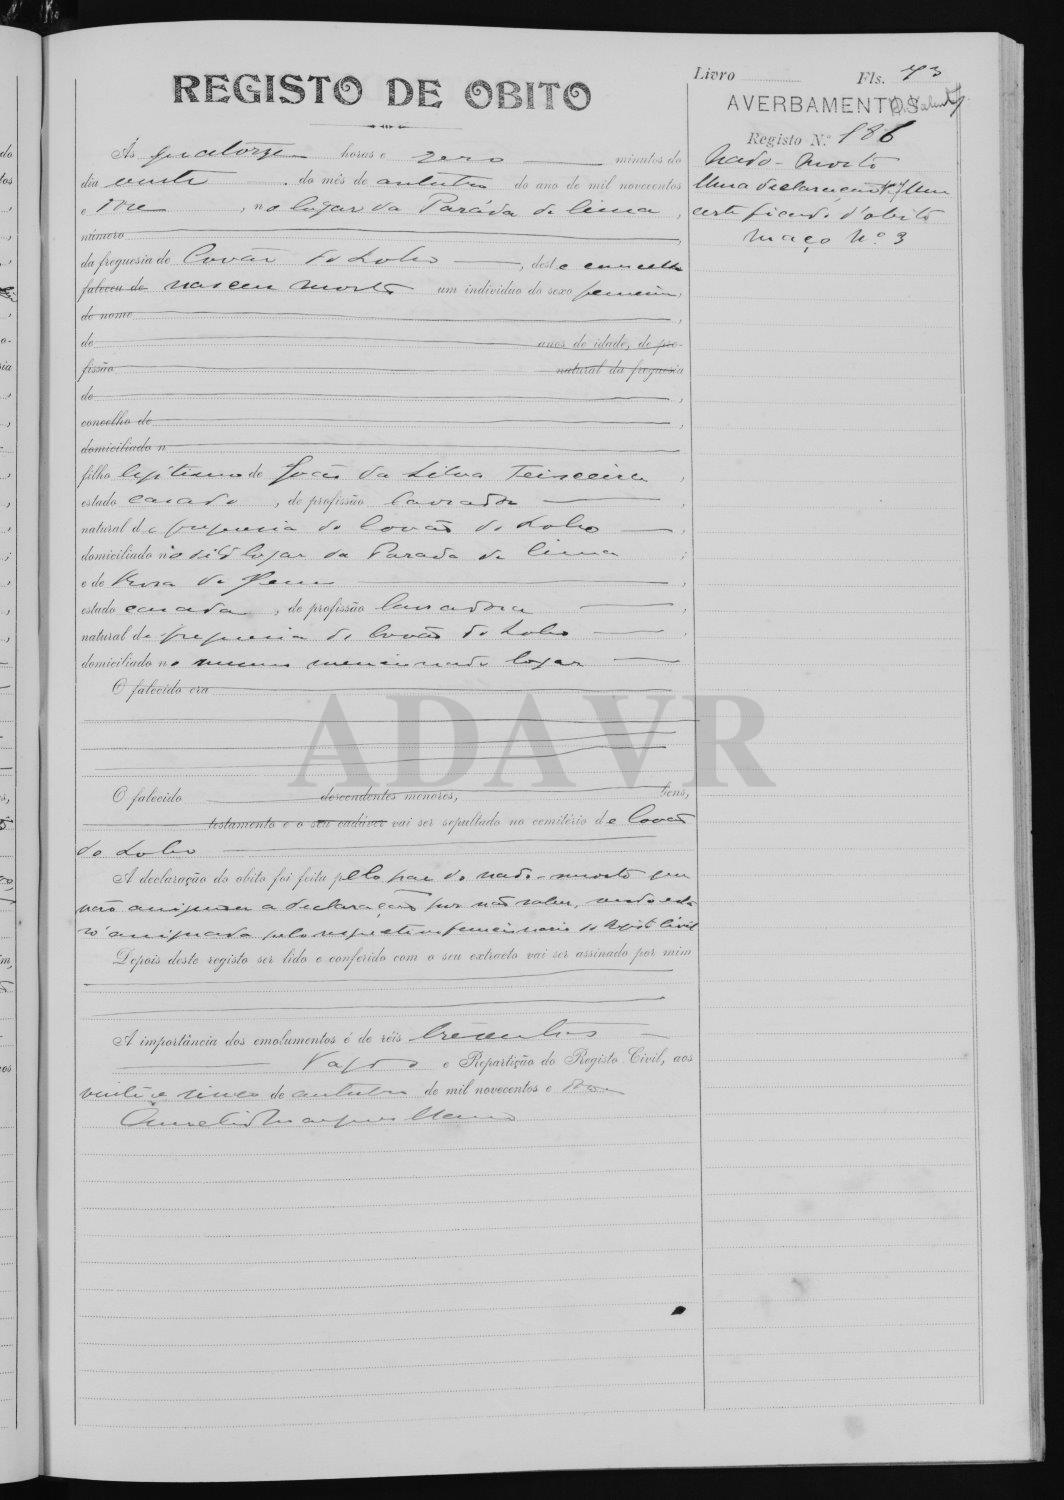 Livro Fls. 73
REGISTO DE OBITO
AVERBAMENTOS
Registo N.º 186
Nado-morto
Uma declaração e um
certificado d'obito
Maço Nº 3
Ás quatorze horas e zero minutos do
dia vinte do mês de outubro do ano de mil novecentos
e , no lugar da Paráda de Cima,
número
da freguesia de Covão do Lobo, deste concelho
faleceu de nasceu morto um individuo do sexo feminino,
de nome
de anos de idade, de pro-
fissão natural da freguesia
de
concelho de
domiciliado n
filho legitimo de João da Silva Teixeira
estado casado, de profissão lavrador
natural da freguesia de Covão do Lobo
domiciliado no dito lugar da Parada de Cima
e de Rosa de Jesus
estado casada, de profissão lavradora
natural da freguesia de Covão do Lobo
domiciliado no mesmo mencionado logar
O falecido era
ADAVR
O falecido descendentes menores, bens,
testamento e o seu cadáver vai ser sepultado no cemitério de Covão
do Lobo
A declaração do obito foi feita pelo pae do nado-morto que
não assignou a declaração por não saber, sendo esta
só assignada pelo respectivo funcionario do Registo Civil
Depois deste registo ser lido e conferido com o seu extracto vai ser assinado por mim
A importância dos emolumentos é de réis trezentos
Vagos e Repartição do Registo Civil, aos
vinte e cinco de outubro de mil novecentos e